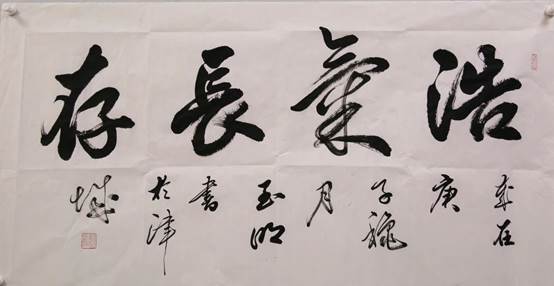 浩氣長存
歲在
庚
子穐
月
玉明
書
於津
城